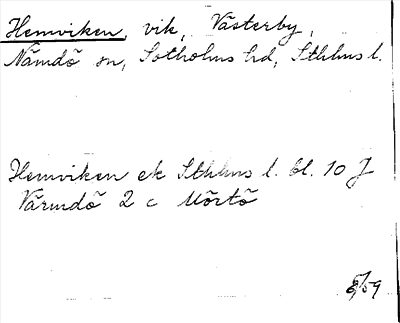 Hemviken, vik, Västerby,
Nämdö sn, Sotholms hd, Sthlms l.
Hemviken ek Sthlms l. bl. 10 J
Värmdö 2 c Mörtö
8/59